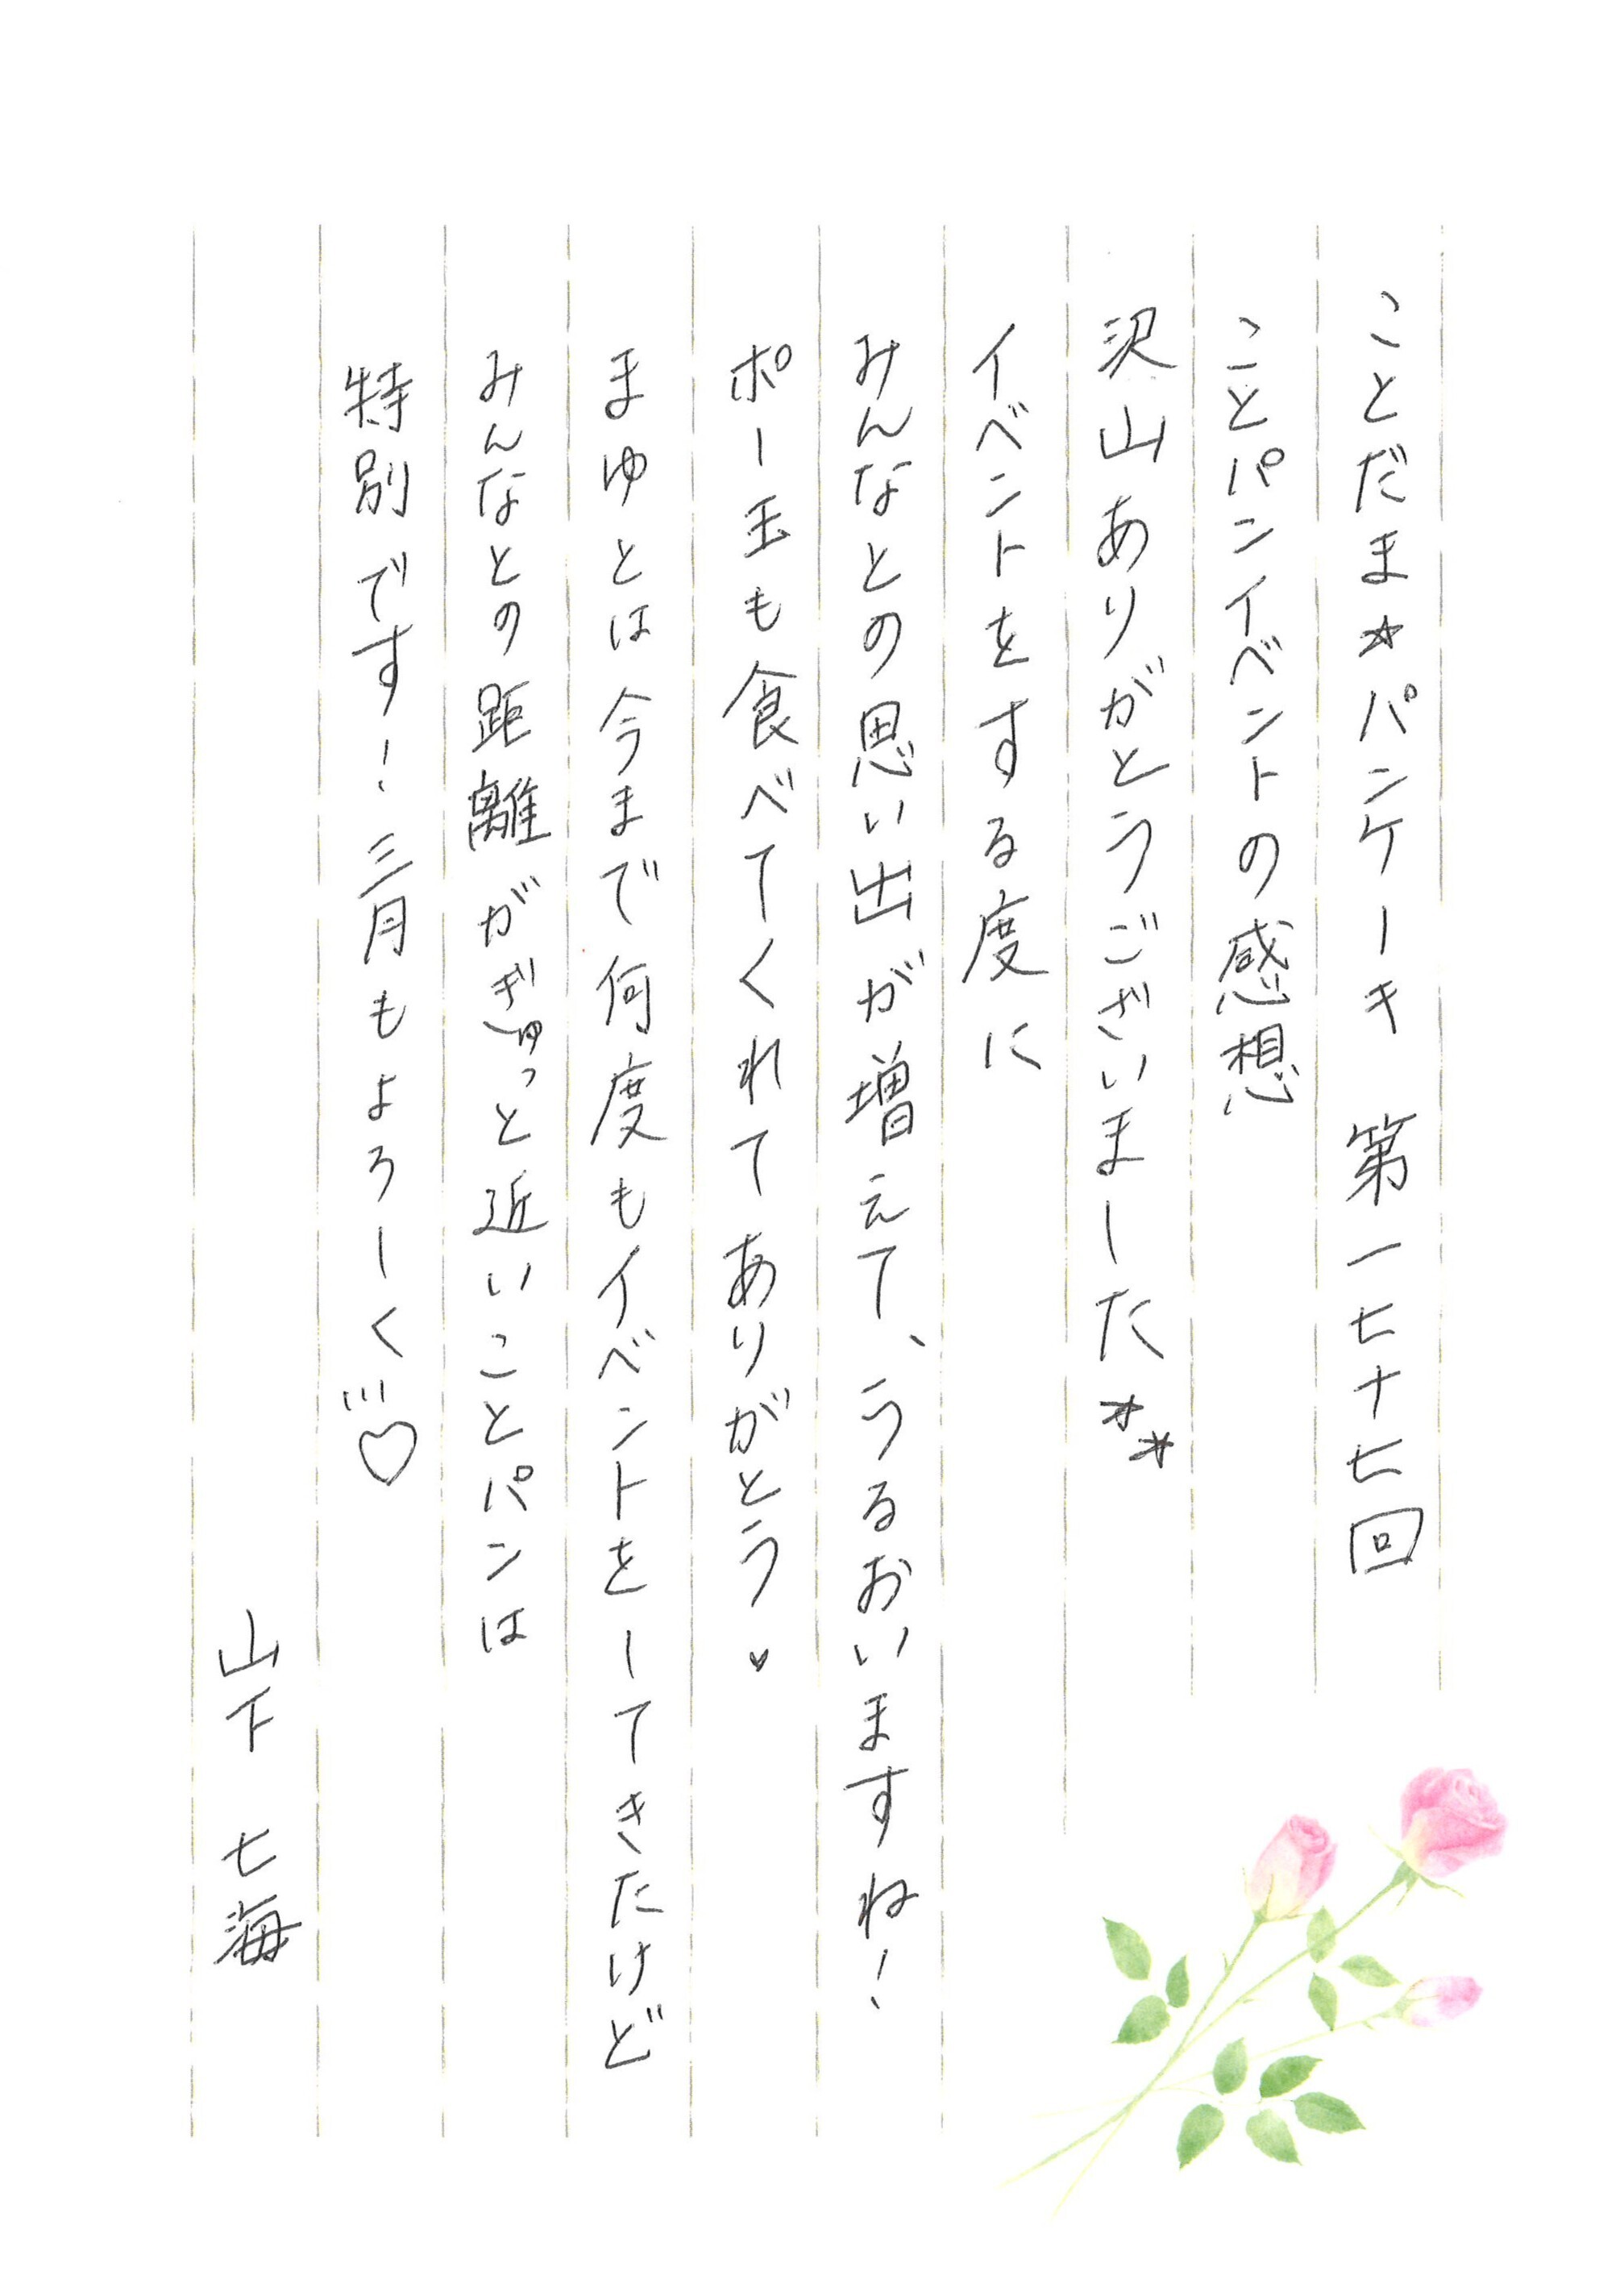 ことだま☆パンケーキ 第一七十七回
ことパンイベントの感想
沢山ありがとうございました**
イベントをする度に
みんなとの思い出が増えて、うるおいますね!
ポー玉も食べてくれてありがとう♥
まゆとは今まで何度もイベントをしてきたけど
みんなとの距離がぎゅっと近いことパンは
特別です!三月もよろしく♡
山下 七海